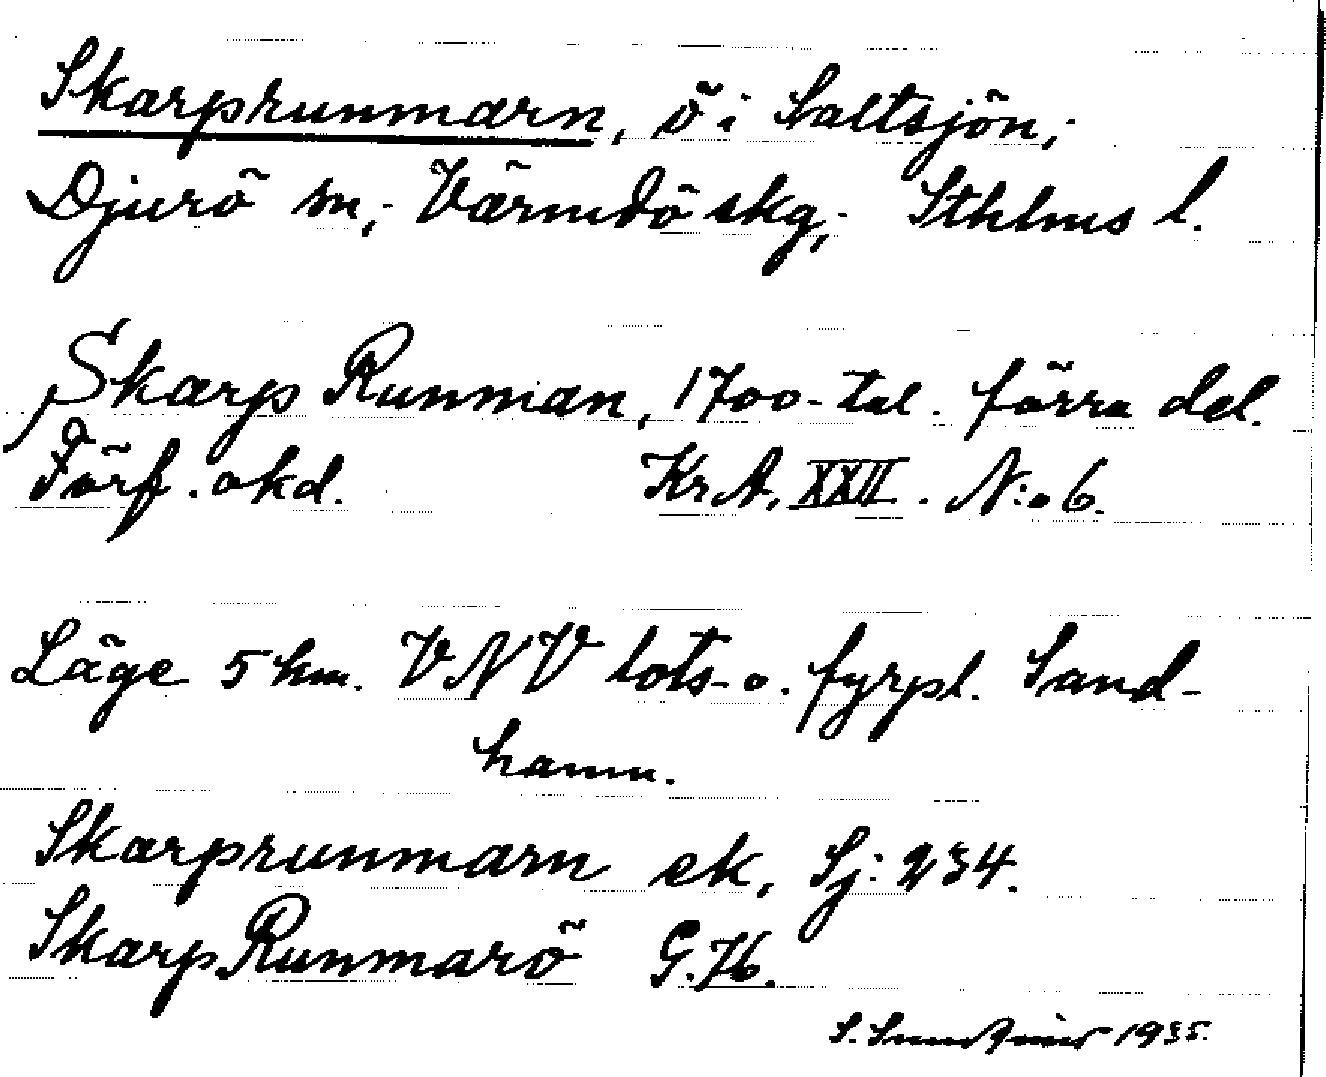 Skarprunmarn, ö i Saltsjön,
Djurö sn, Värmdö skg, Sthlms l.
Skarp Runman, 1700-tal. förra del.
Förf. okd. Kr.A. XXII. N:o 6.
Läge 5 km. VNV lots- o. fyrpl. Sand-
hamn.
Skarprunmarn ek, Sj: 234.
Skarp Runmarö G.K.
S. 1935.